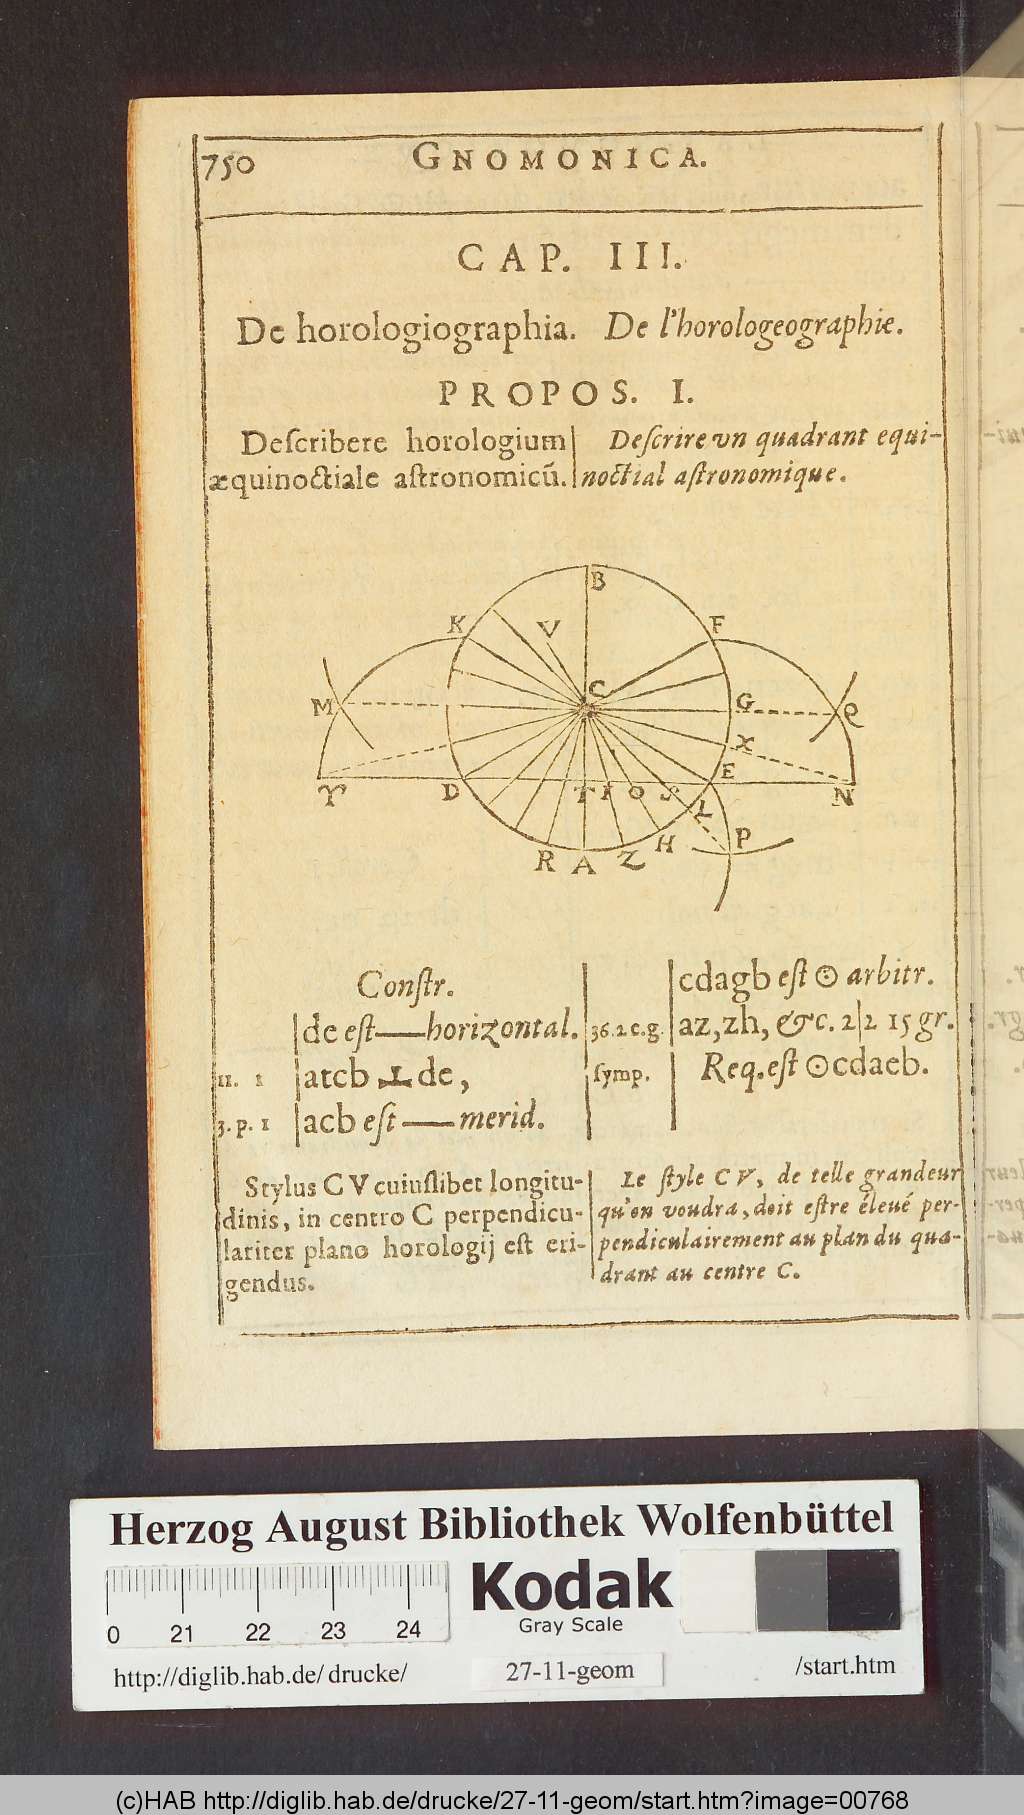 750 GNOMONICA.
CAP. III.
De horologiographia. De l'horologeographie.
PROPOS. I.
Deſcribere horologium
æquinoctiale aſtronomicũ.
Deſcrire vn quadrant equi-
noctial aſtronomique.
B
K V F
C
M G Q
X
E
♈ D T I O S N
L
P
R A Z H
Conſtr.
de eſt — horizontal.
11. 1 atcb ⊥ de,
3. p. 1 acb eſt — merid.
cdagb eſt ☉ arbitr.
36. 2 c. g. az, zh, &c. 2|2 15 gr.
ſymp. Req. eſt ☉ cdaeb.
Stylus C V cuiuſlibet longitu-
dinis, in centro C perpendicu-
lariter plano horologij eſt eri-
gendus.
Le ſtyle C V, de telle grandeur
qu'on voudra, doit eſtre éleué per-
pendiculairement au plan du qua-
drant au centre C.
Herzog August Bibliothek Wolfenbüttel
Kodak
Gray Scale
0 21 22 23 24
http://diglib.hab.de/ drucke/ 27-11-geom /start.htm
(c)HAB http://diglib.hab.de/drucke/27-11-geom/start.htm?image=00768